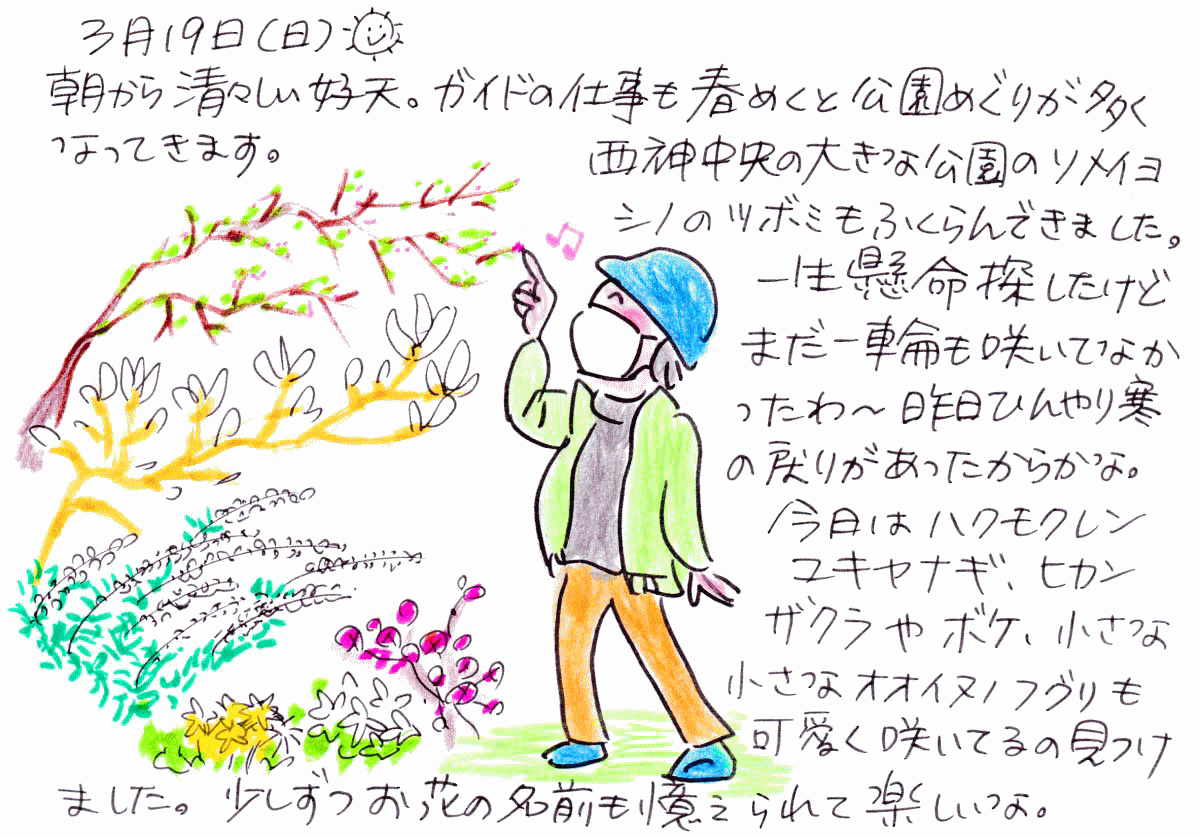 3月19日(日)
朝から清々しい好天。ガイドの仕事も春めくと公園めぐりが多く
なってきます。
西神中央の大きな公園のソメイヨ
シノのツボミもふくらんできました。
一生懸命探したけど
まだ一輪も咲いてなか
ったわ〜昨日ひんやり寒
の戻りがあったからかな。
今日はハクモクレン
ユキヤナギ、ヒカン
ザクラやボケ、小さな
小さなオオイヌノフグリも
可愛く咲いてるの見つけ
ました。少しずつお花の名前も憶えられて楽しいな。